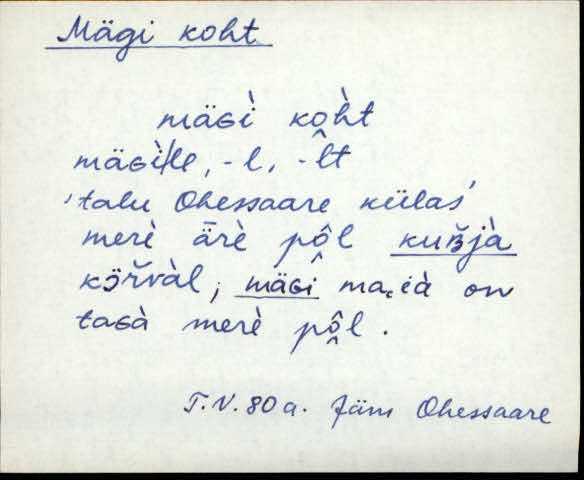 Mägi koht
mäɢì koh̀t
mäɢìlle, -l, -l̂t
'talu Ohessaare külas'
merè ārè pô̭l kuʙjà
kɔ̈̄řvàl; mäɢi maᴄià on
tasà merè pô̭l.
T.V. 80 a. Jäm Ohessaare